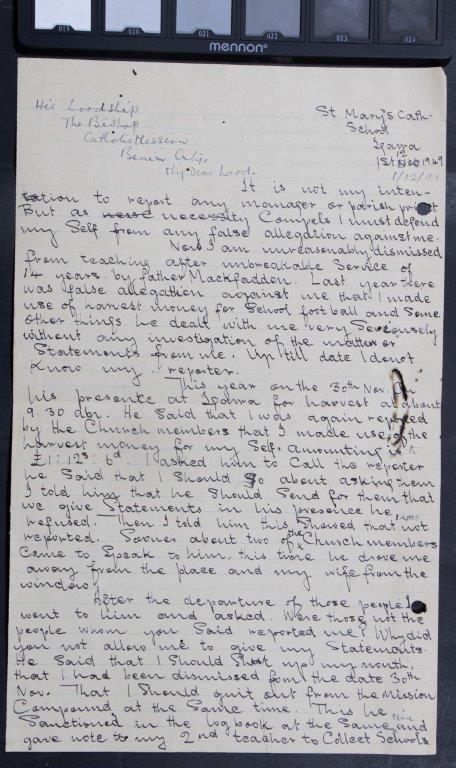 019 020 021 022 023 024
mennon
His Lordship
The Bishop
Catholic Mission
Benin City,
My dear Lord.
St Mary's Cath.
School
Igarra
1st 12 Dec 1949
1/12/49
It is not my inten-
tation to report any manager or parish priest
But as necess necessity Compels I must defend
my Self from any false allegation against me.
Now I am unreasonably dismissed
from teaching after unbreakable Service of
14 years. by father Mackfadden. Last year were
was false allegation against me that I made
use of harvest money for School foot ball and Some
other things he dealt with me very Seriously
without any investigation of the matter or
Statements from me. Up till date I do not
know my reporter.
This year on the 30th Nov.
his presente at Igarra for harvest at about
9.30 am. He Said that I was again reported
by the Church members that I made use of the
harvest money for my Self. amounting
£1: 12s: 6d. I asked him to Call the reporter
he Said that I Should go about asking them
I told him that he Should Send for them that
we give Statements in his presence he
refused. Then I told him this Showed that not
reported. Sooner about two of the Church members
Came to Speak to him, this time he drove me
away from the place and my wife from the
window!
After the departure of those people I
went to him and asked. Were those not the
people whom you Said reported me? Why did
you not allow me to give my Statements.
He Said that I Should Shut up my mouth,
that I had been dismissed from the date 30th
Nov. That I Should quit out from the Mission
Compound at the Same time. This he
Sanctioned in the log book at the Same time and
gave note to my 2nd teacher to Collect Schools